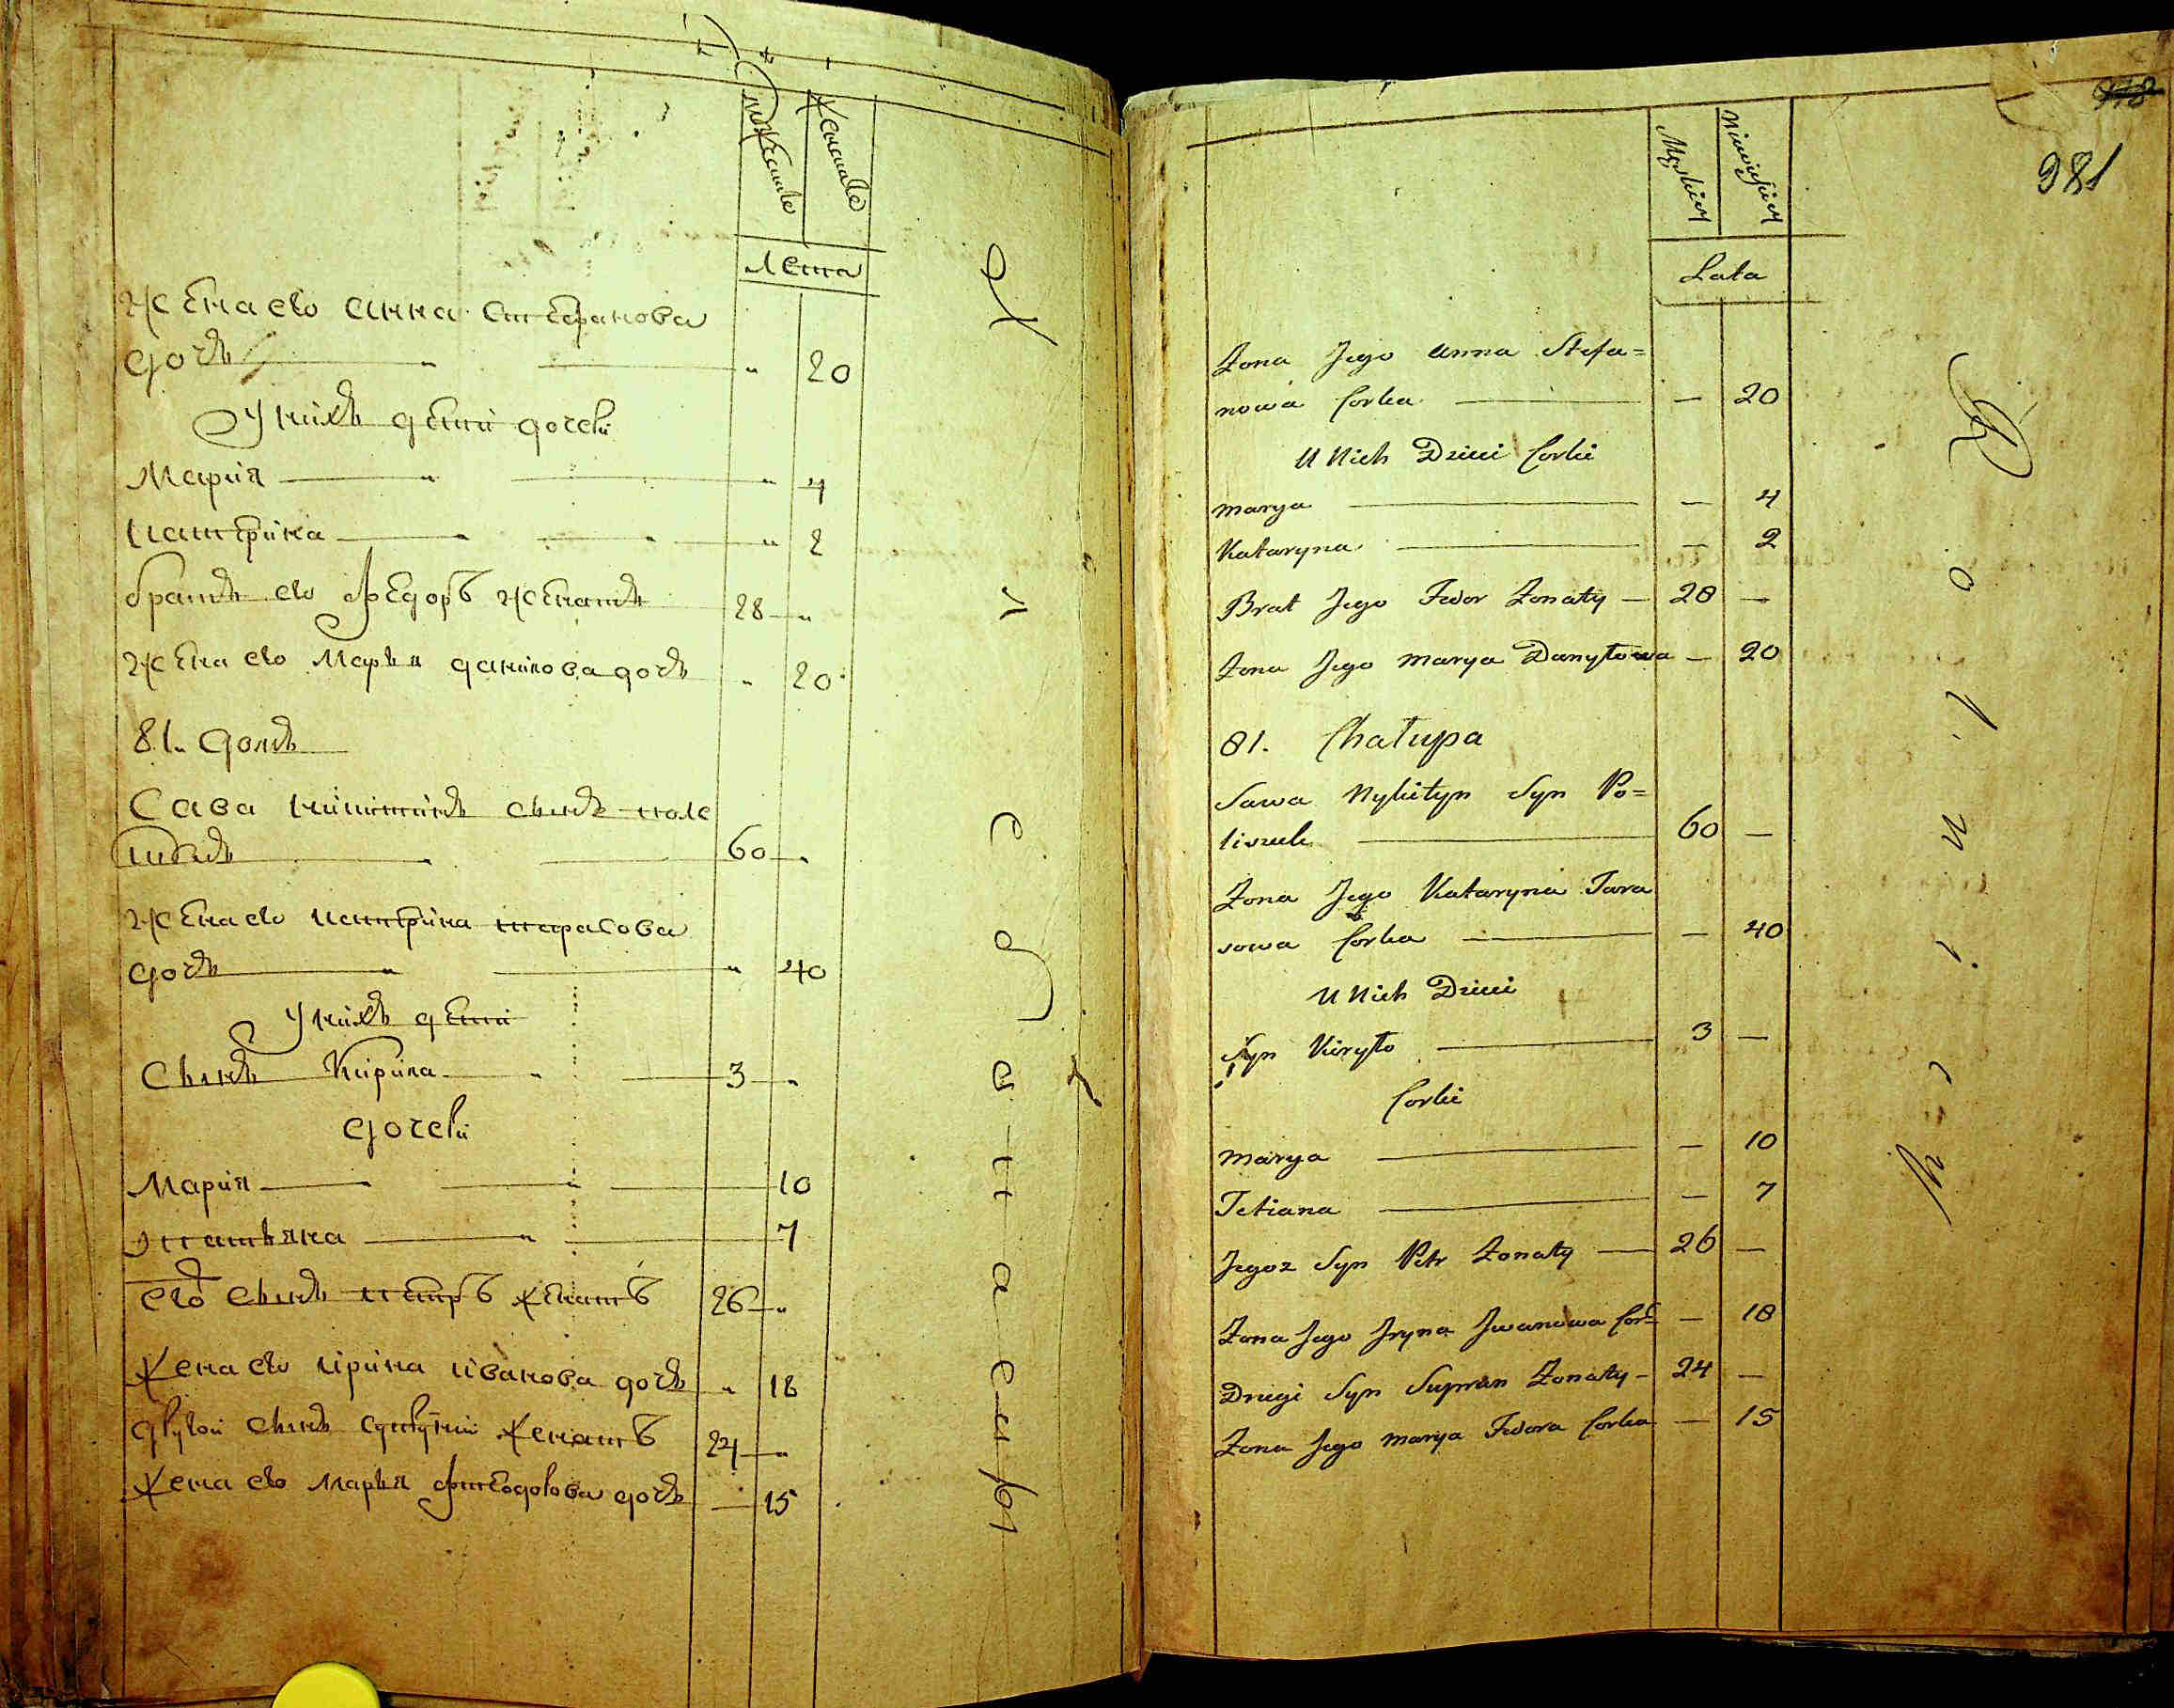 Женские
Лета
Жена его Анна Стефанова
дочь " " 20
У них дети дочери
Мария " " 4
Катерина " " 2
Брат его Федор женат 28 "
Жена его Марья Данилова дочь " 20
81. дом
Сава Никитин сын Поле
" 60 "
Жена его Катерина Тарасова
дочь " " 40
У них дети
Сын Кирила " 3 "
дочери
Мария " 10
Татьяна " 7
Его сын Петръ женатъ 26 "
Жена его Ирина Иванова дочь " 18
другой сын женатъ 24 "
Жена его Марья Феодорова дочь — 15
981
Męskiey Niewieściey
Lata
Żona Jego Anna Stefa=
nowa Corka — 20
U Nich Dzieci Corki
Marya — 4
Kataryna — 2
Brat Jego Fedor Żonaty — 28 —
Żona Jego Marya Danyłowa — 20
81. Chałupa
Sawa Nykityn Syn Po=
liszuk 60 —
Żona Jego Kataryna Tara
sowa Corka — 40
U Nich Dzieci
Syn Kiryło 3 —
Corki
Marya — 10
Tetiana — 7
Jegoz Syn Petr Żonaty — 26 —
Żona Jego Jryna Jwanowa Cor= — 18
Drugi Syn Suprun Żonaty — 24 —
Żona Jego Marya Fedora Corka — 15
R o l n i c y